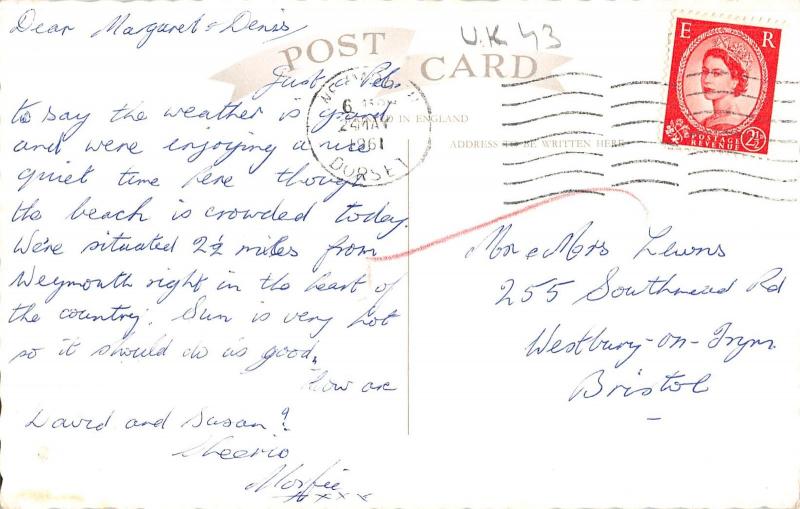 Dear Margaret & Denis
POST CARD
U.K 43
E R
POSTAGE REVENUE
2½
Just a
to say the weather is grand
and were enjoying a nice
quiet time here though
the beach is crowded today.
We're situated 2½ miles from
Weymouth right in the heart of
the country. Sun is very hot
so it should do us good.
How are
David and Susan?
Cheerio
xxxx
6
24 MAY
1961
DORSET
IN ENGLAND
ADDRESS TO BE WRITTEN HERE
Mr & Mrs Lewns
255 Southmead Rd
Westbury-on-Trym
Bristol